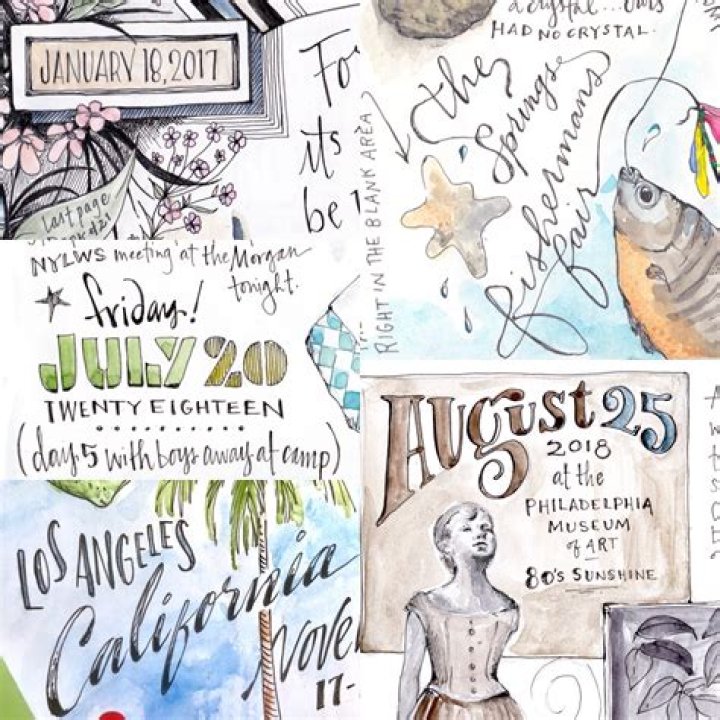 JANUARY 18, 2017
For
it's
be
last page
NYLWS meeting at the Morgan
tonight.
friday!
JULY 20
TWENTY EIGHTEEN
(day 5 with boys away at camp)
LOS ANGELES
California
NOVE
17-
a crystal... ours
HAD NO CRYSTAL.
RIGHT IN THE BLANK AREA
the
Springs
fishermans
fair
AUGUST 25
2018
at the
PHILADELPHIA
MUSEUM
of ART
80's SUNSHINE